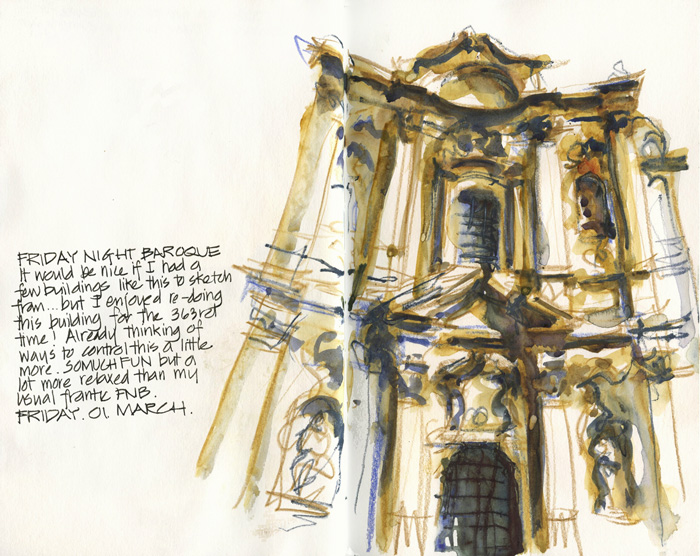 FRIDAY NIGHT BAROQUE
It would be nice if I had a
few buildings like this to sketch
from... but I enjoyed re-doing
this building for the 363rd
time! Already thinking of
ways to control this a little
more. SO MUCH FUN but a
lot more relaxed than my
usual frantic FNB.
FRIDAY. 01. MARCH.